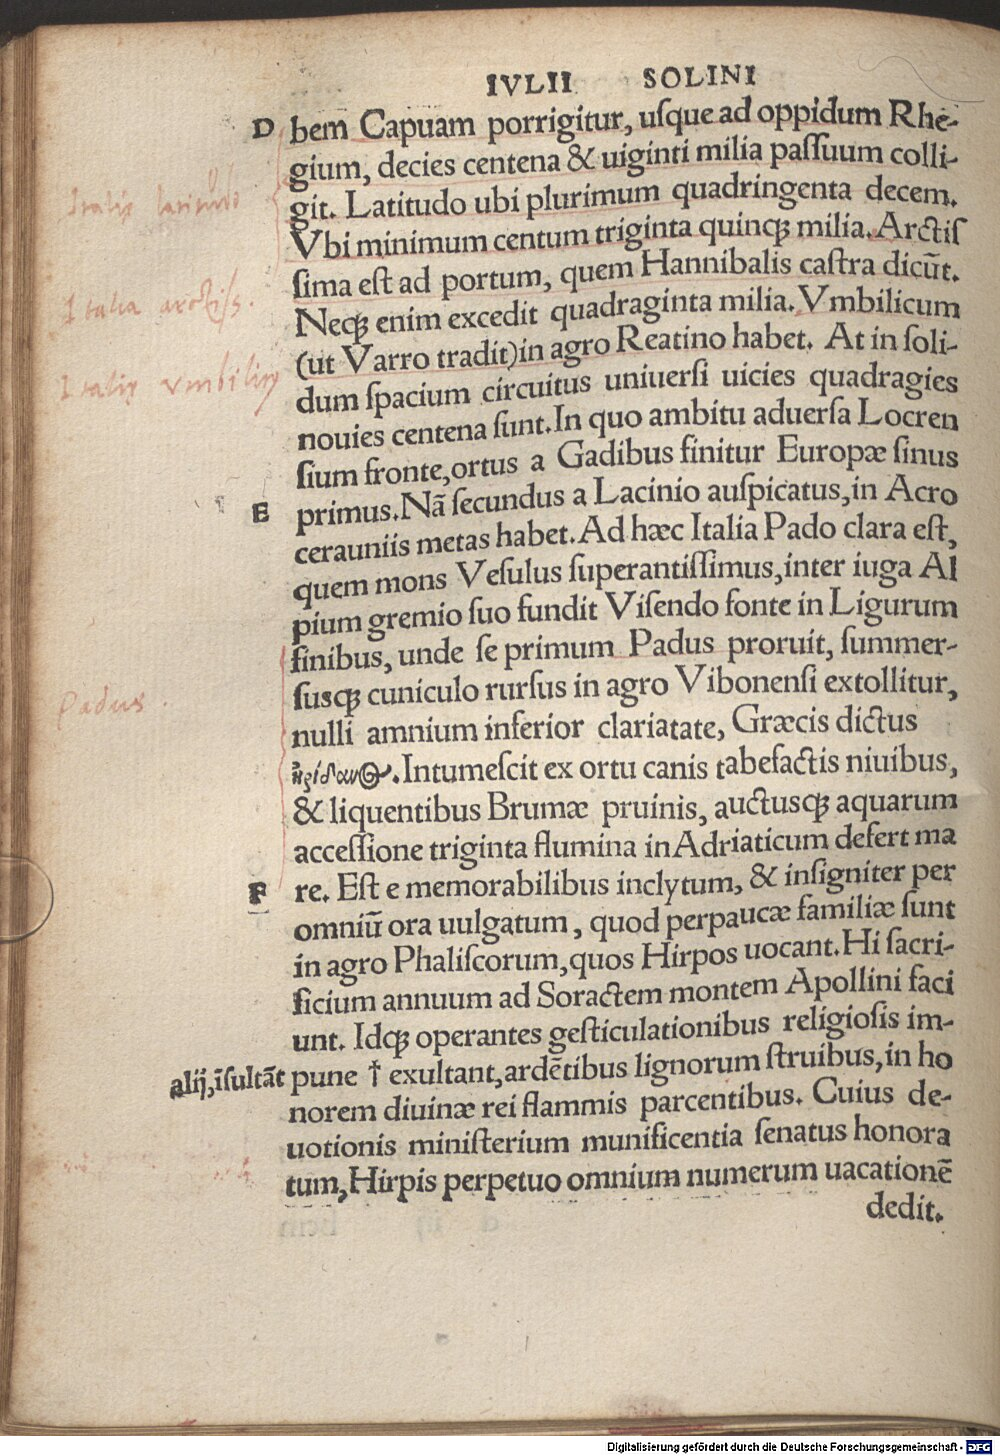 IVLII SOLINI
D bem Capuam porrigitur, uſque ad oppidum Rhe-
gium, decies centena & uiginti milia paſſuum colli-
git. Latitudo ubi plurimum quadringenta decem.
Italię latitudo
Vbi minimum centum triginta quinqꝫ milia. Arctiſ
ſima eſt ad portum, quem Hannibalis caſtra dicūt.
Italia arctiſs.
Neqꝫ enim excedit quadraginta milia. Vmbilicum
(ut Varro tradit) in agro Reatino habet. At in ſoli-
Italię vmbilicꝰ
dum ſpacium circuitus uniuerſi uicies quadragies
nouies centena ſunt. In quo ambitu aduerſa Locren
ſium fronte, ortus a Gadibus finitur Europæ ſinus
E primus. Nã ſecundus a Lacinio auſpicatus, in Acro
cerauniis metas habet. Ad hæc Italia Pado clara eſt,
quem mons Veſulus ſuperantiſſimus, inter iuga Al
pium gremio ſuo fundit Viſendo fonte in Ligurum
finibus, unde ſe primum Padus proruit, ſummer-
ſusqꝫ cuniculo rurſus in agro Vibonenſi extollitur,
Padus.
nulli amnium inferior clariatate, Græcis dictus
ἠρίδανος. Intumeſcit ex ortu canis tabefactis niuibus,
& liquentibus Brumæ pruinis, auctusqꝫ aquarum
acceſſione triginta flumina in Adriaticum defert ma
F re. Eſt e memorabilibus inclytum, & inſigniter per
omniū ora uulgatum, quod perpaucæ familiæ ſunt
in agro Phaliſcorum, quos Hirpos uocant. Hi ſacri-
ficium annuum ad Soractem montem Apollini faci
unt. Idqꝫ operantes geſticulationibus religioſis im-
alij, īſultãt pune † exultant, ardētibus lignorum ſtruibus, in ho
norem diuinæ rei flammis parcentibus. Cuius de-
uotionis miniſterium munificentia ſenatus honora
tum, Hirpis perpetuo omnium numerum uacationē
dedit.
Digitalisierung gefördert durch die Deutsche Forschungsgemeinschaft - DFG